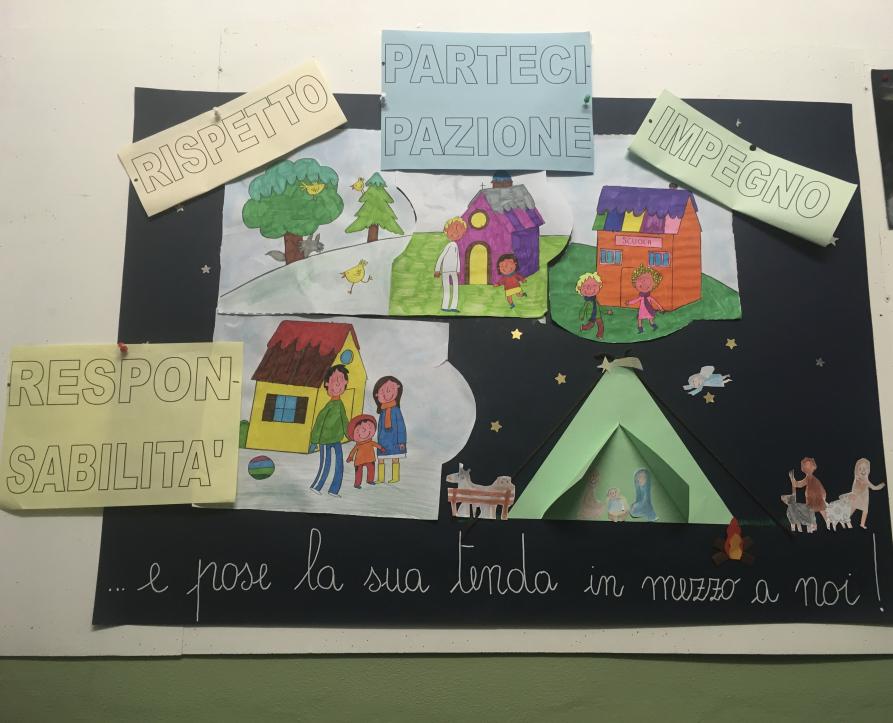 RISPETTO
PARTECI
PAZIONE
IMPEGNO
SCUOLA
RESPON
SABILITA'
... e pose la sua tenda in mezzo a noi!